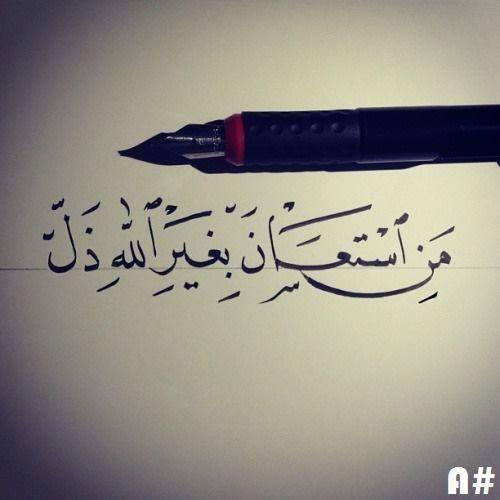 مَنِ ٱسْتَعَانَ بِغَيْرِ ٱللّٰهِ ذَلَّ
A#